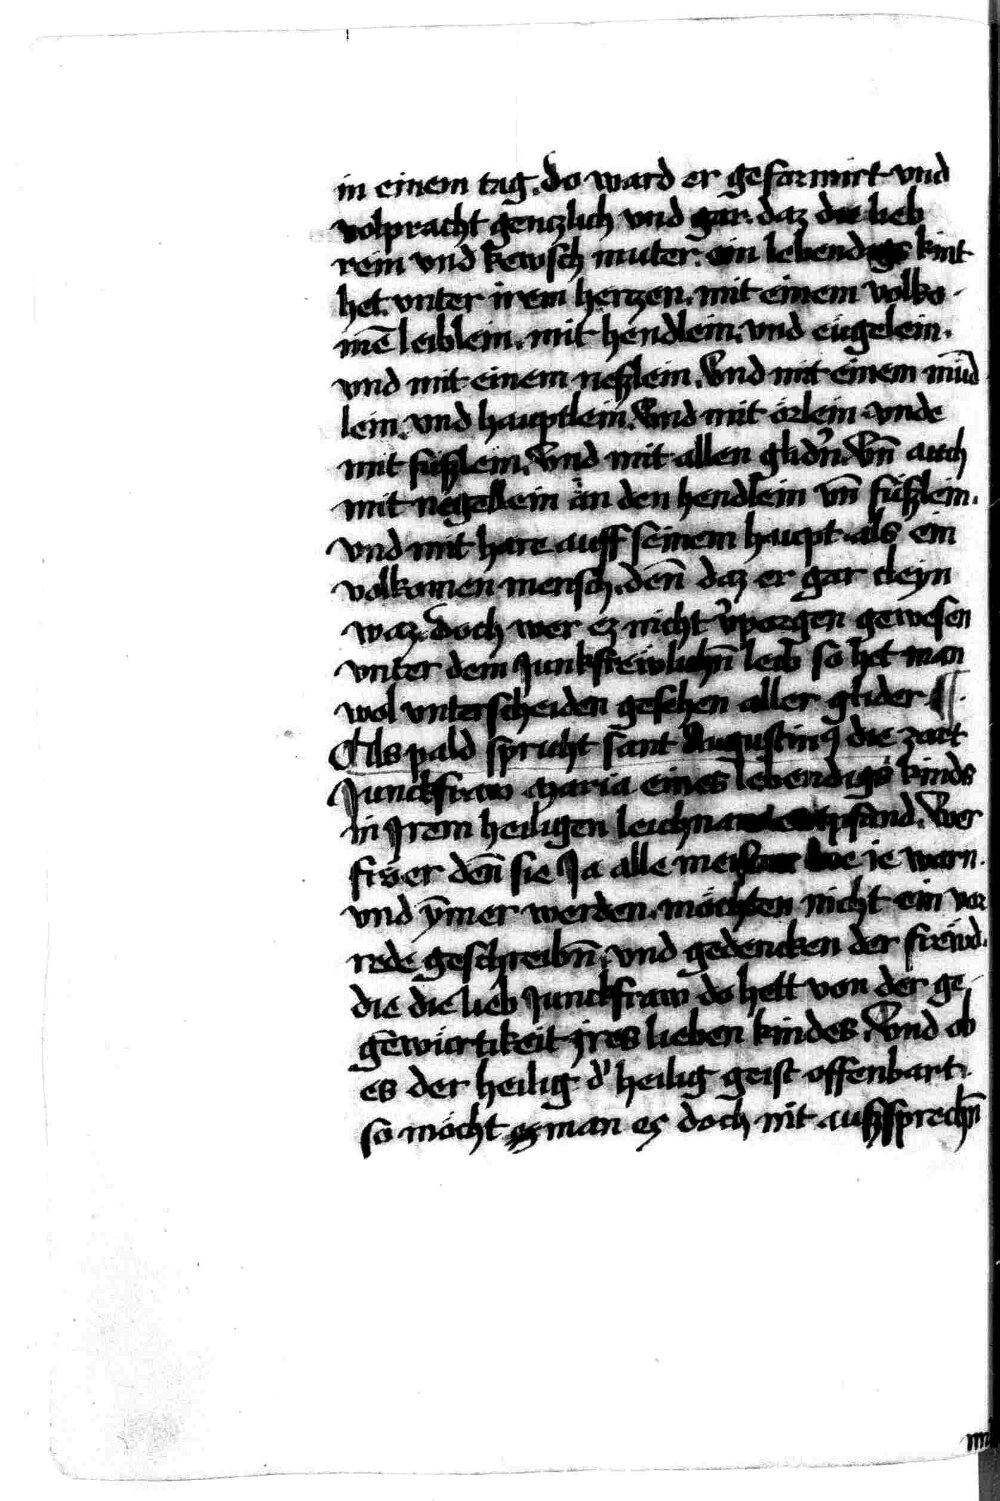 in einem tag. do ward er geformirt vnd
volpracht genczlich vnd gar. daz die lieb
rein vnd kewsch muter. ein lebendigs kint
het. vnter irem herczen. mit einem volko-
mē leiblein. mit hendlein. vnd eügelein.
vnd mit einem neßlein. Vnd mit einem mūd
lein. vnd hauptlein. Vnd mit örlein vnde
mit füßlein. Vnd mit allen glidn̄. Vn̄ auch
mit negellein an den hendlein vn̄ füßlein.
vnd mit hare auff seinem haupt als ein
volkomen mensch. den̄ daz er gar cleyn
waz. doch wer ez nicht v̓porgen gewesen
vnter dem Junkfrewlichn̄ leib so het man
wol vnterscheiden gesehen aller glider ¶.
Als pald spricht sant Augustinꝯ die zart
Junckfraw maria eines lebendigs kinds
in Jrem heiligen leichnam entpfand. Wer
frŏer den̄ sie Ja alle meister die ie warn.
vnd ÿmer werden. möchten nicht ein vor
rede geschreibn̄. vnd gedencken der frewd.
die die lieb Junckfraw do hett von der ge-
gēwürtikeit jres lieben kindes. Vnd ob
es der heilig d̓ heilig geist offenbart.
so möcht man es doch nit außsprechn̄